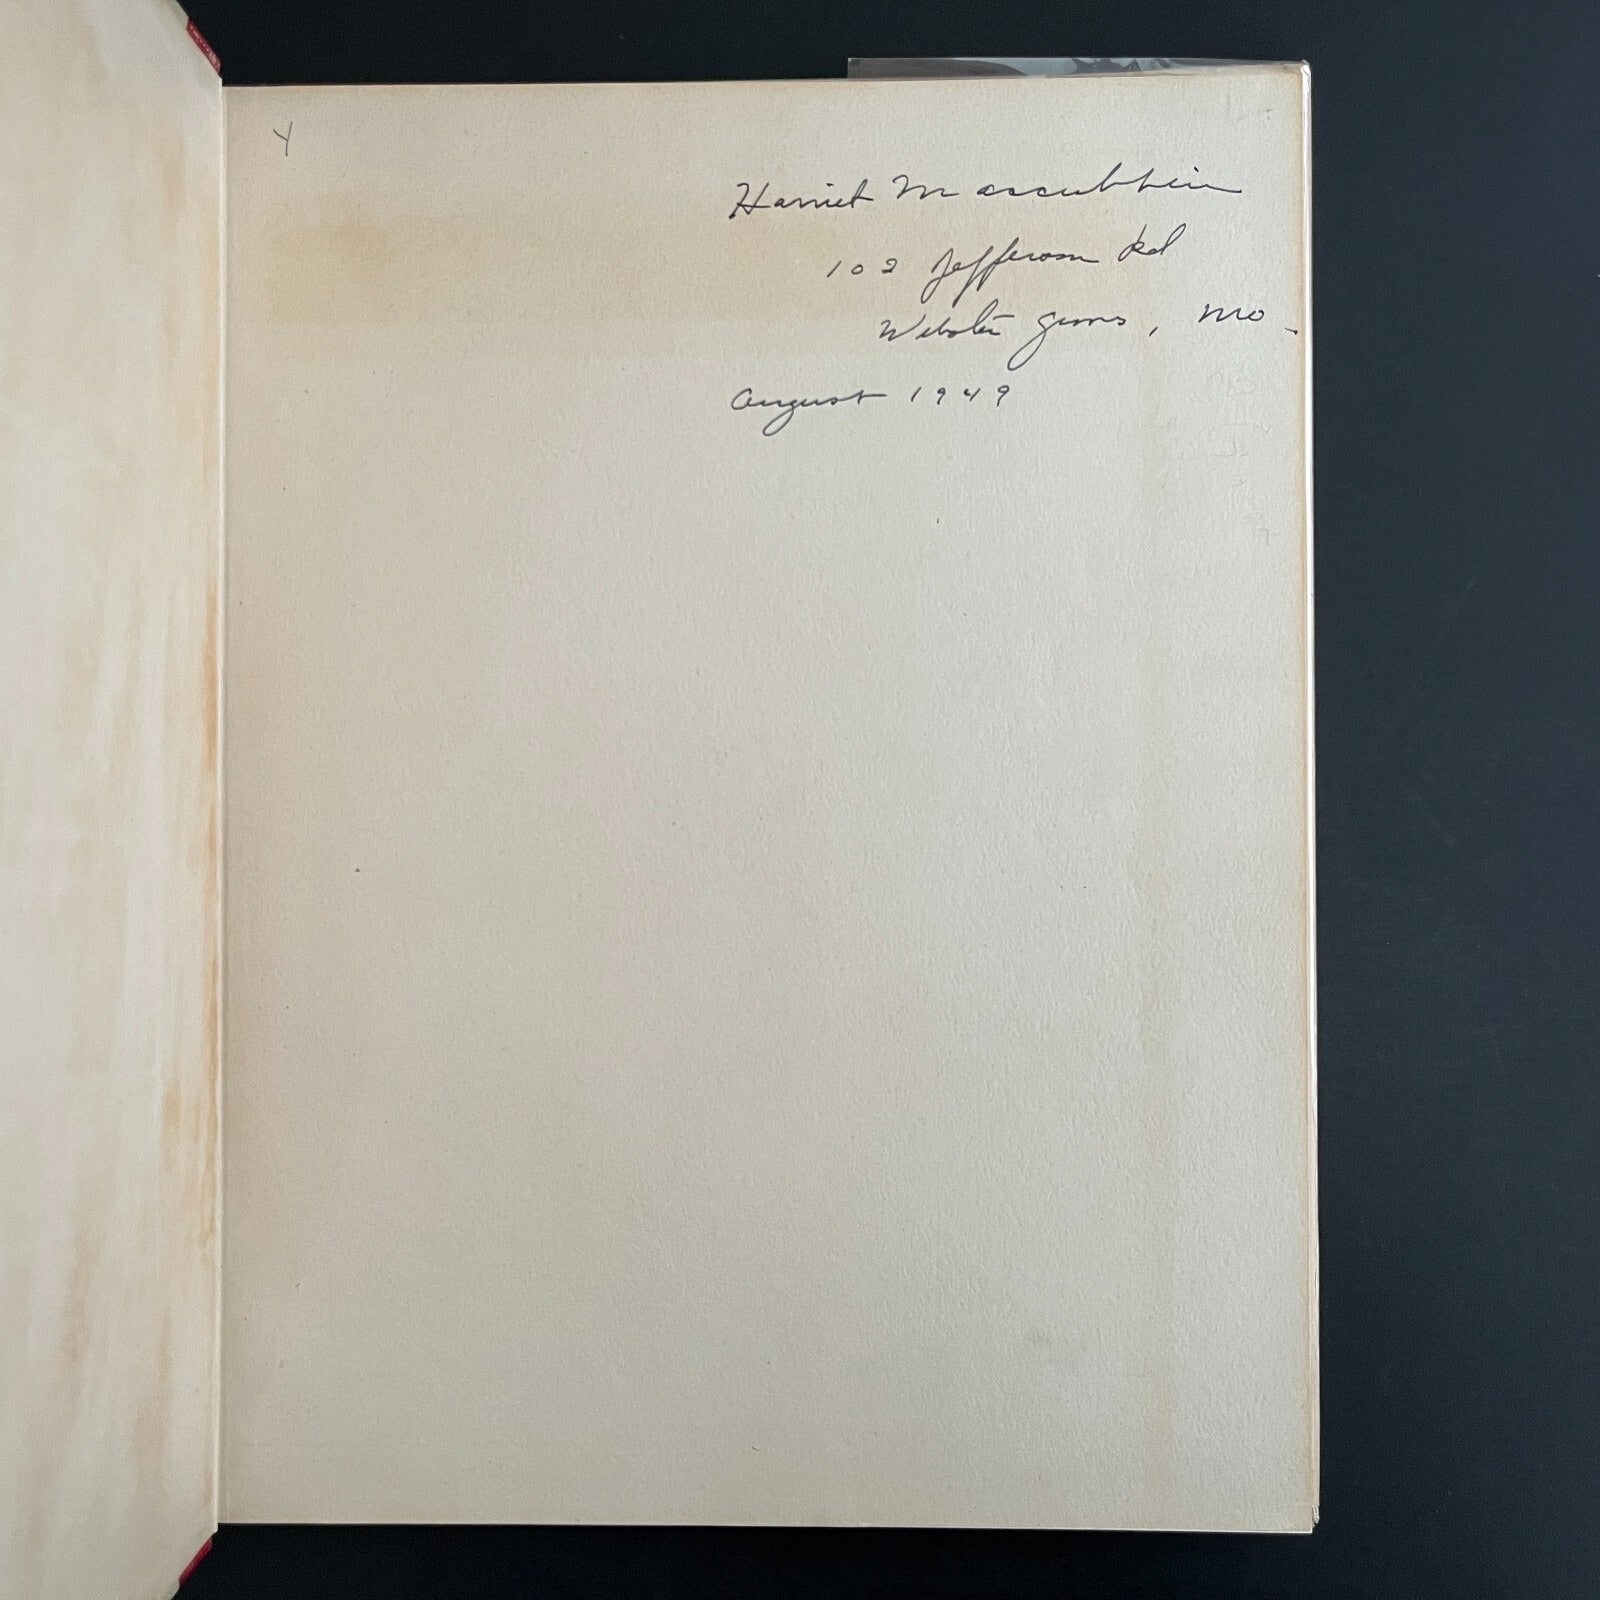 Harriet
102 Jefferson Rd
Webster Groves, Mo.
August 1949